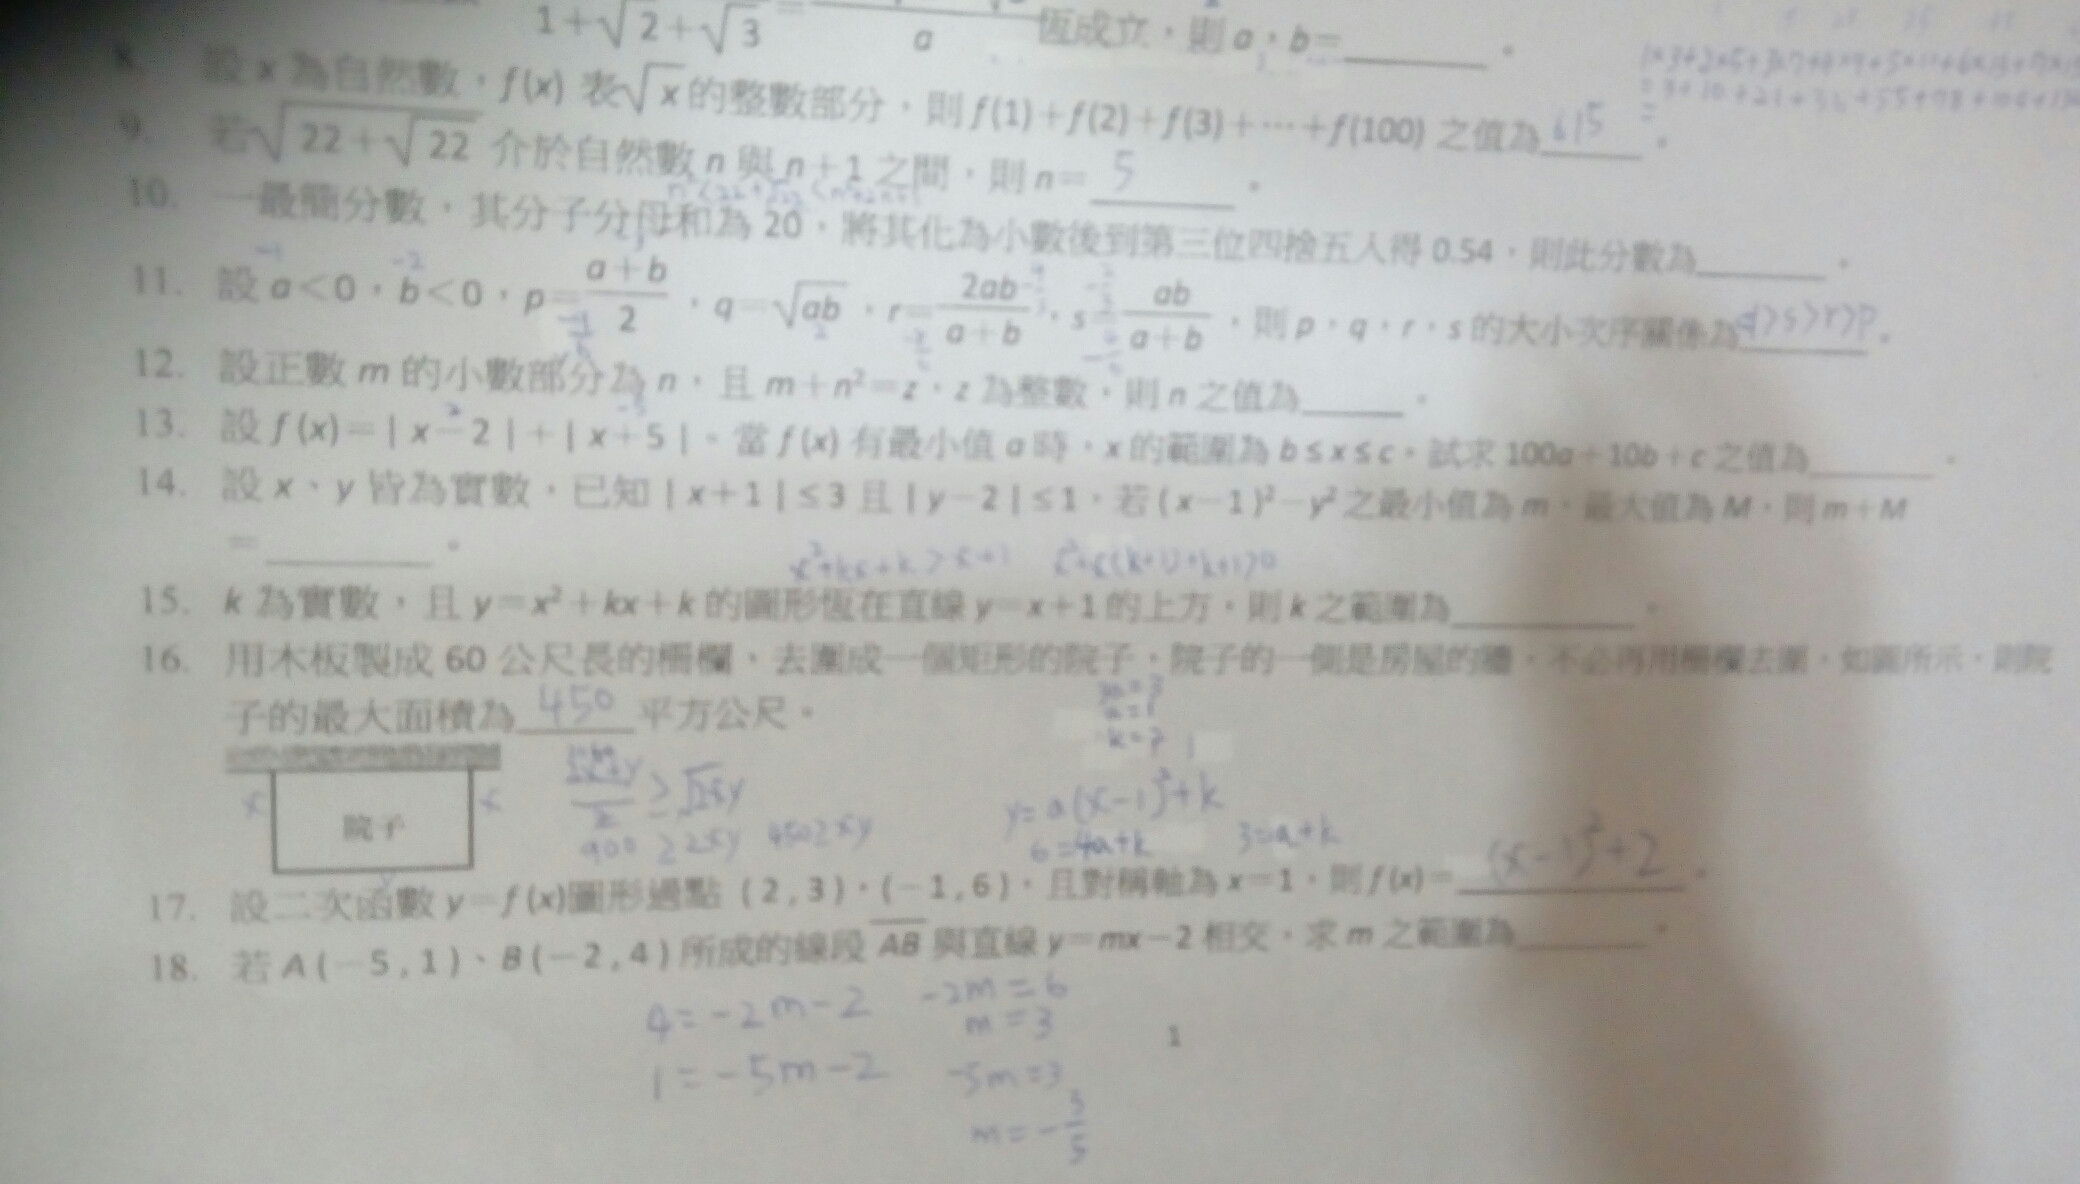 1+√2+√3 = a 恆成立，則 a，b=______。
8. 設 x 為自然數，f(x) 表√x的整數部分，則 f(1)+f(2)+f(3)+⋯+f(100) 之值為 615 。
9. 若√(22+√22) 介於自然數 n 與 n+1 之間，則 n= 5 。
10. 一最簡分數，其分子分母和為 20，將其化為小數後到第三位四捨五入得 0.54，則此分數為______。
-1 -2
11. 設 a<0，b<0，p=(a+b)/2，q=√ab，r=2ab/(a+b)，s=ab/(a+b)，則 p，q，r，s 的大小次序關係為 q>s>r>p。
12. 設正數 m 的小數部分為 n，且 m+n²=z，z 為整數，則 n 之值為______。
13. 設 f(x)=|x-2|+|x+5|。當 f(x) 有最小值 a 時，x 的範圍為 b≤x≤c，試求 100a+10b+c 之值為______。
14. 設 x、y 皆為實數，已知 |x+1|≤3 且 |y-2|≤1，若 (x-1)²-y² 之最小值為 m，最大值為 M，則 m+M
=______。
x²+kx+k>x+1
15. k 為實數，且 y=x²+kx+k 的圖形恆在直線 y=x+1 的上方，則 k 之範圍為______。
16. 用木板製成 60 公尺長的柵欄，去圍成一個矩形的院子，院子的一側是房屋的牆，不必再用柵欄去圍，如圖所示，則院
子的最大面積為 450 平方公尺。
x 院子 x
900≥2xy 450≥xy
y=a(x-1)²+k
6=4a+k 3=a+k
17. 設二次函數 y=f(x)圖形過點 (2,3)，(-1,6)，且對稱軸為 x=1，則 f(x)= (x-1)²+2 。
18. 若 A(-5,1)、B(-2,4) 所成的線段 AB 與直線 y=mx-2 相交，求 m 之範圍為______。
4=-2m-2 -2m=6
m=3
1=-5m-2 -5m=3
m=-3/5
1